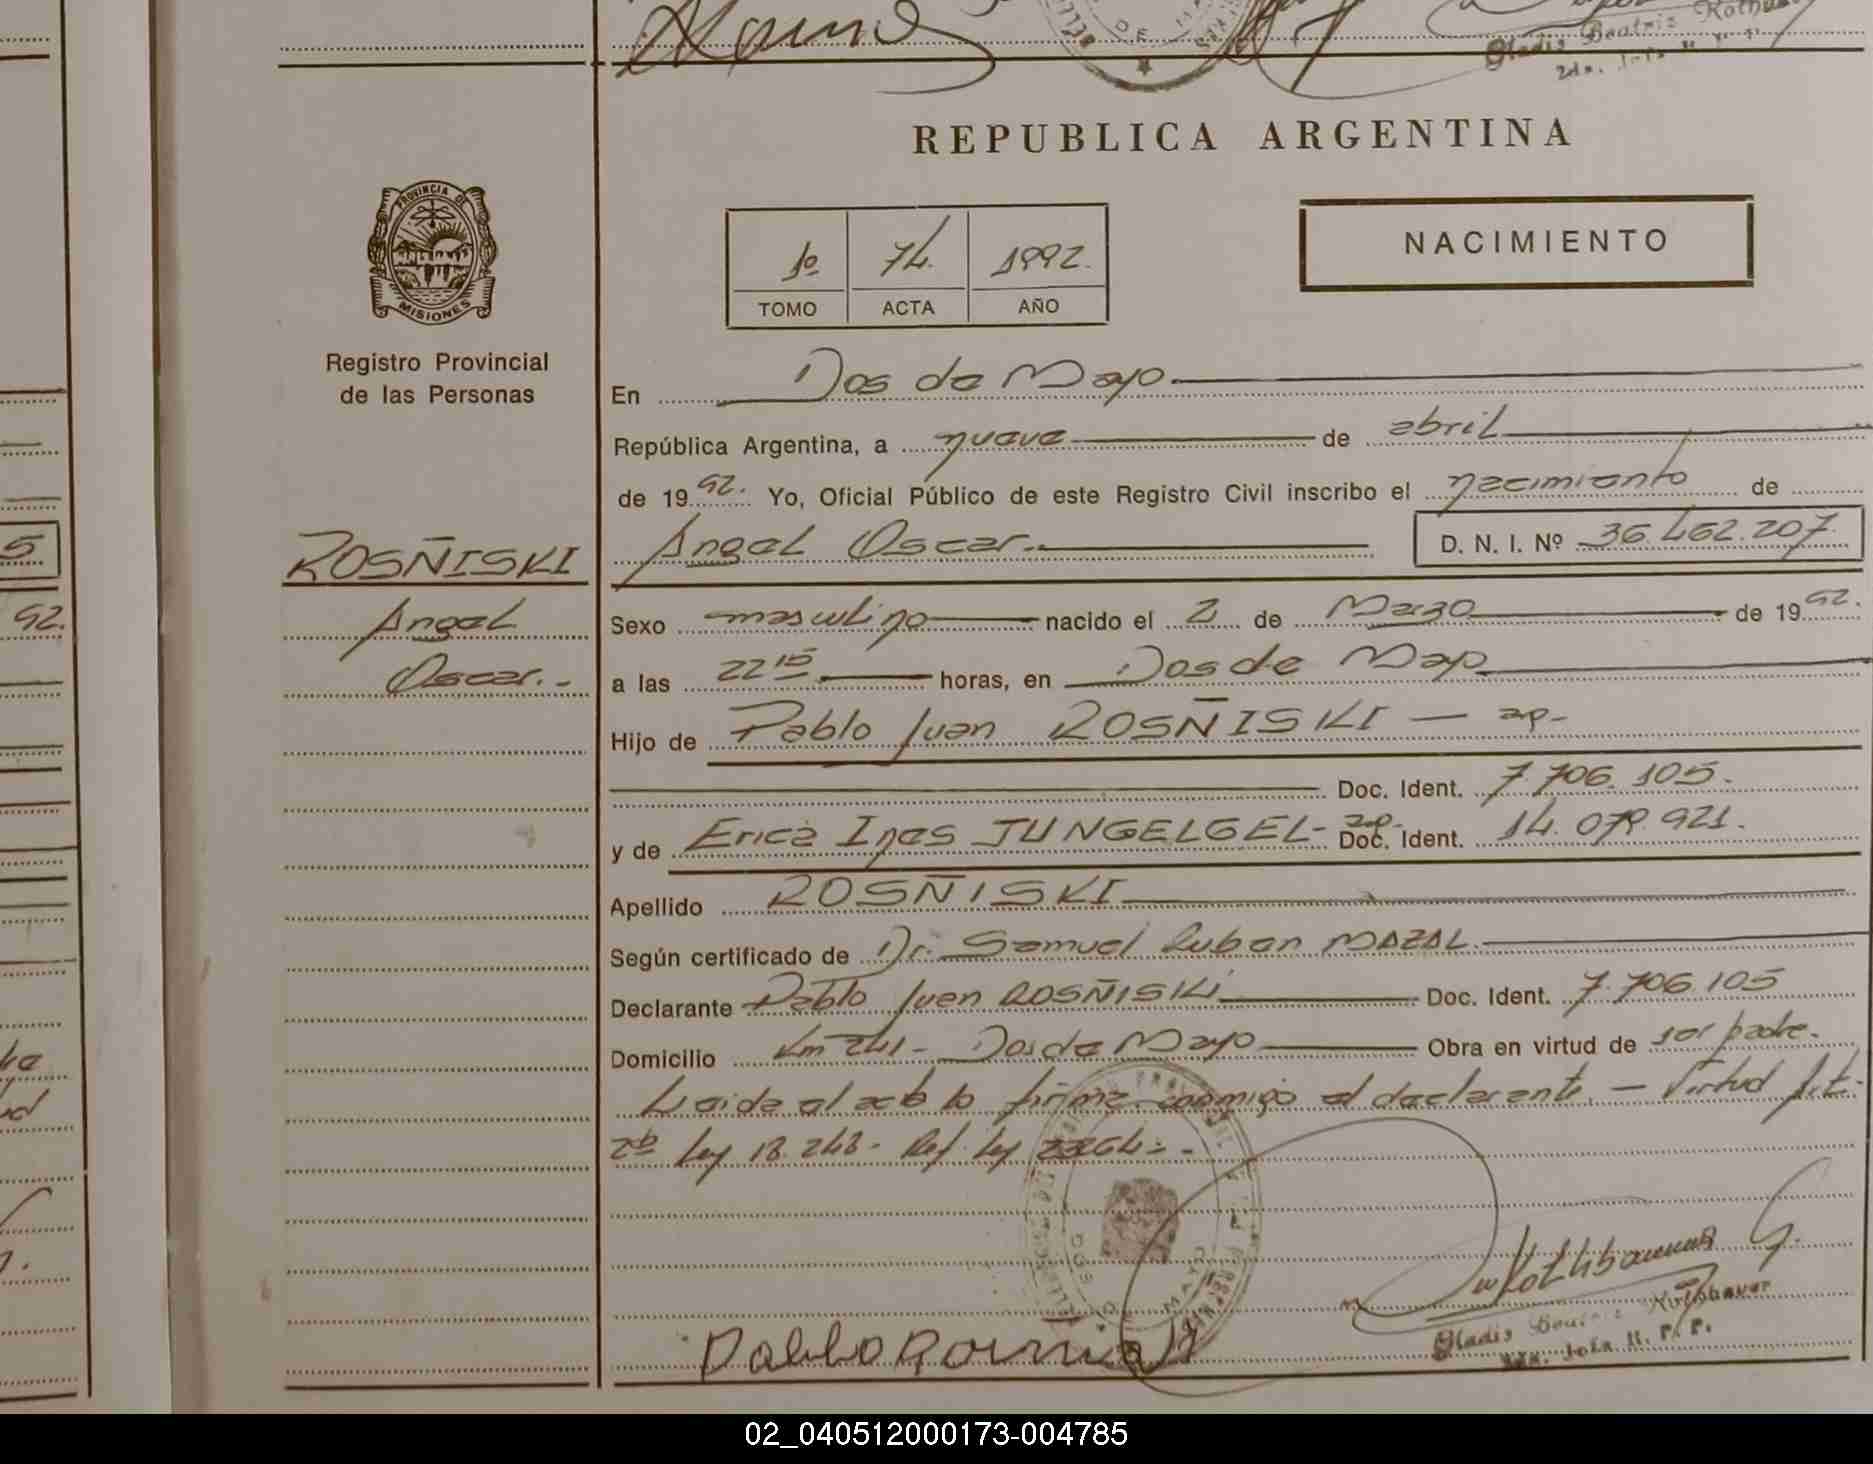 Gladis Beatriz
REPUBLICA ARGENTINA
PROVINCIA DE
MISIONES
Registro Provincial
de las Personas
1º 74. 1992.
TOMO ACTA AÑO
NACIMIENTO
En Dos de Mayo
República Argentina, a nueve de abril
de 1992. Yo, Oficial Público de este Registro Civil inscribo el nacimiento de
Angel Oscar. D. N. I. Nº 36.462.207
ROSÑISKI
Angel
Oscar.-
5
92.
Sexo masculino nacido el 2 de Marzo de 1992.
a las 22 15 horas, en Dos de Mayo
Hijo de Pablo Juan ROSÑISKI — ap-
Doc. Ident. 7.706.105.
y de Erica Ines JUNGELGEL- ap- Doc. Ident. 14.079.921.
Apellido ROSÑISKI
Según certificado de Dr. Samuel Ruben MAZAL.
Declarante Pablo Juan ROSÑISKI Doc. Ident. 7.706.105
Domicilio Km 241- Dos de Mayo Obra en virtud de ser padre.
Leida el acta la firma conmigo el declarante. — Virtud Art.
Ley 18.248- Ref. Ley
DOS DE MAYO
Pablo
Gladis
02_040512000173-004785